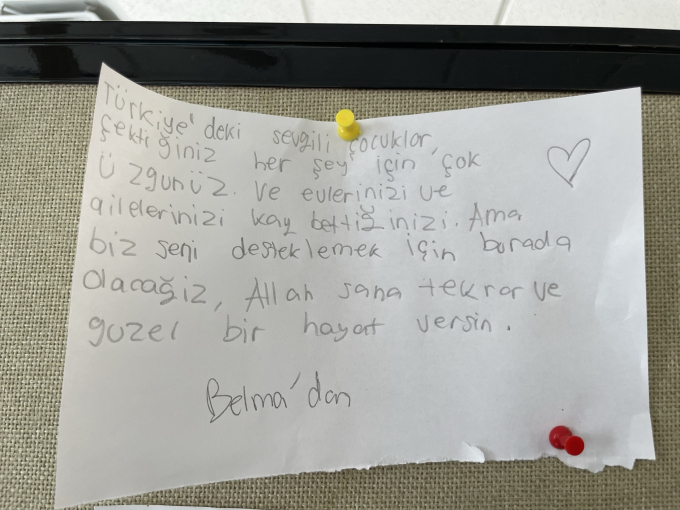 Türkiye'deki sevgili çocuklar,
çektiğiniz her şey için çok
üzgünüz. Ve evlerinizi ve
ailelerinizi kaybettiğinizi. Ama
biz seni desteklemek için burada
olacağiz, Allah sana tekrar ve
guzel bir hayat versin.
Belma'dan